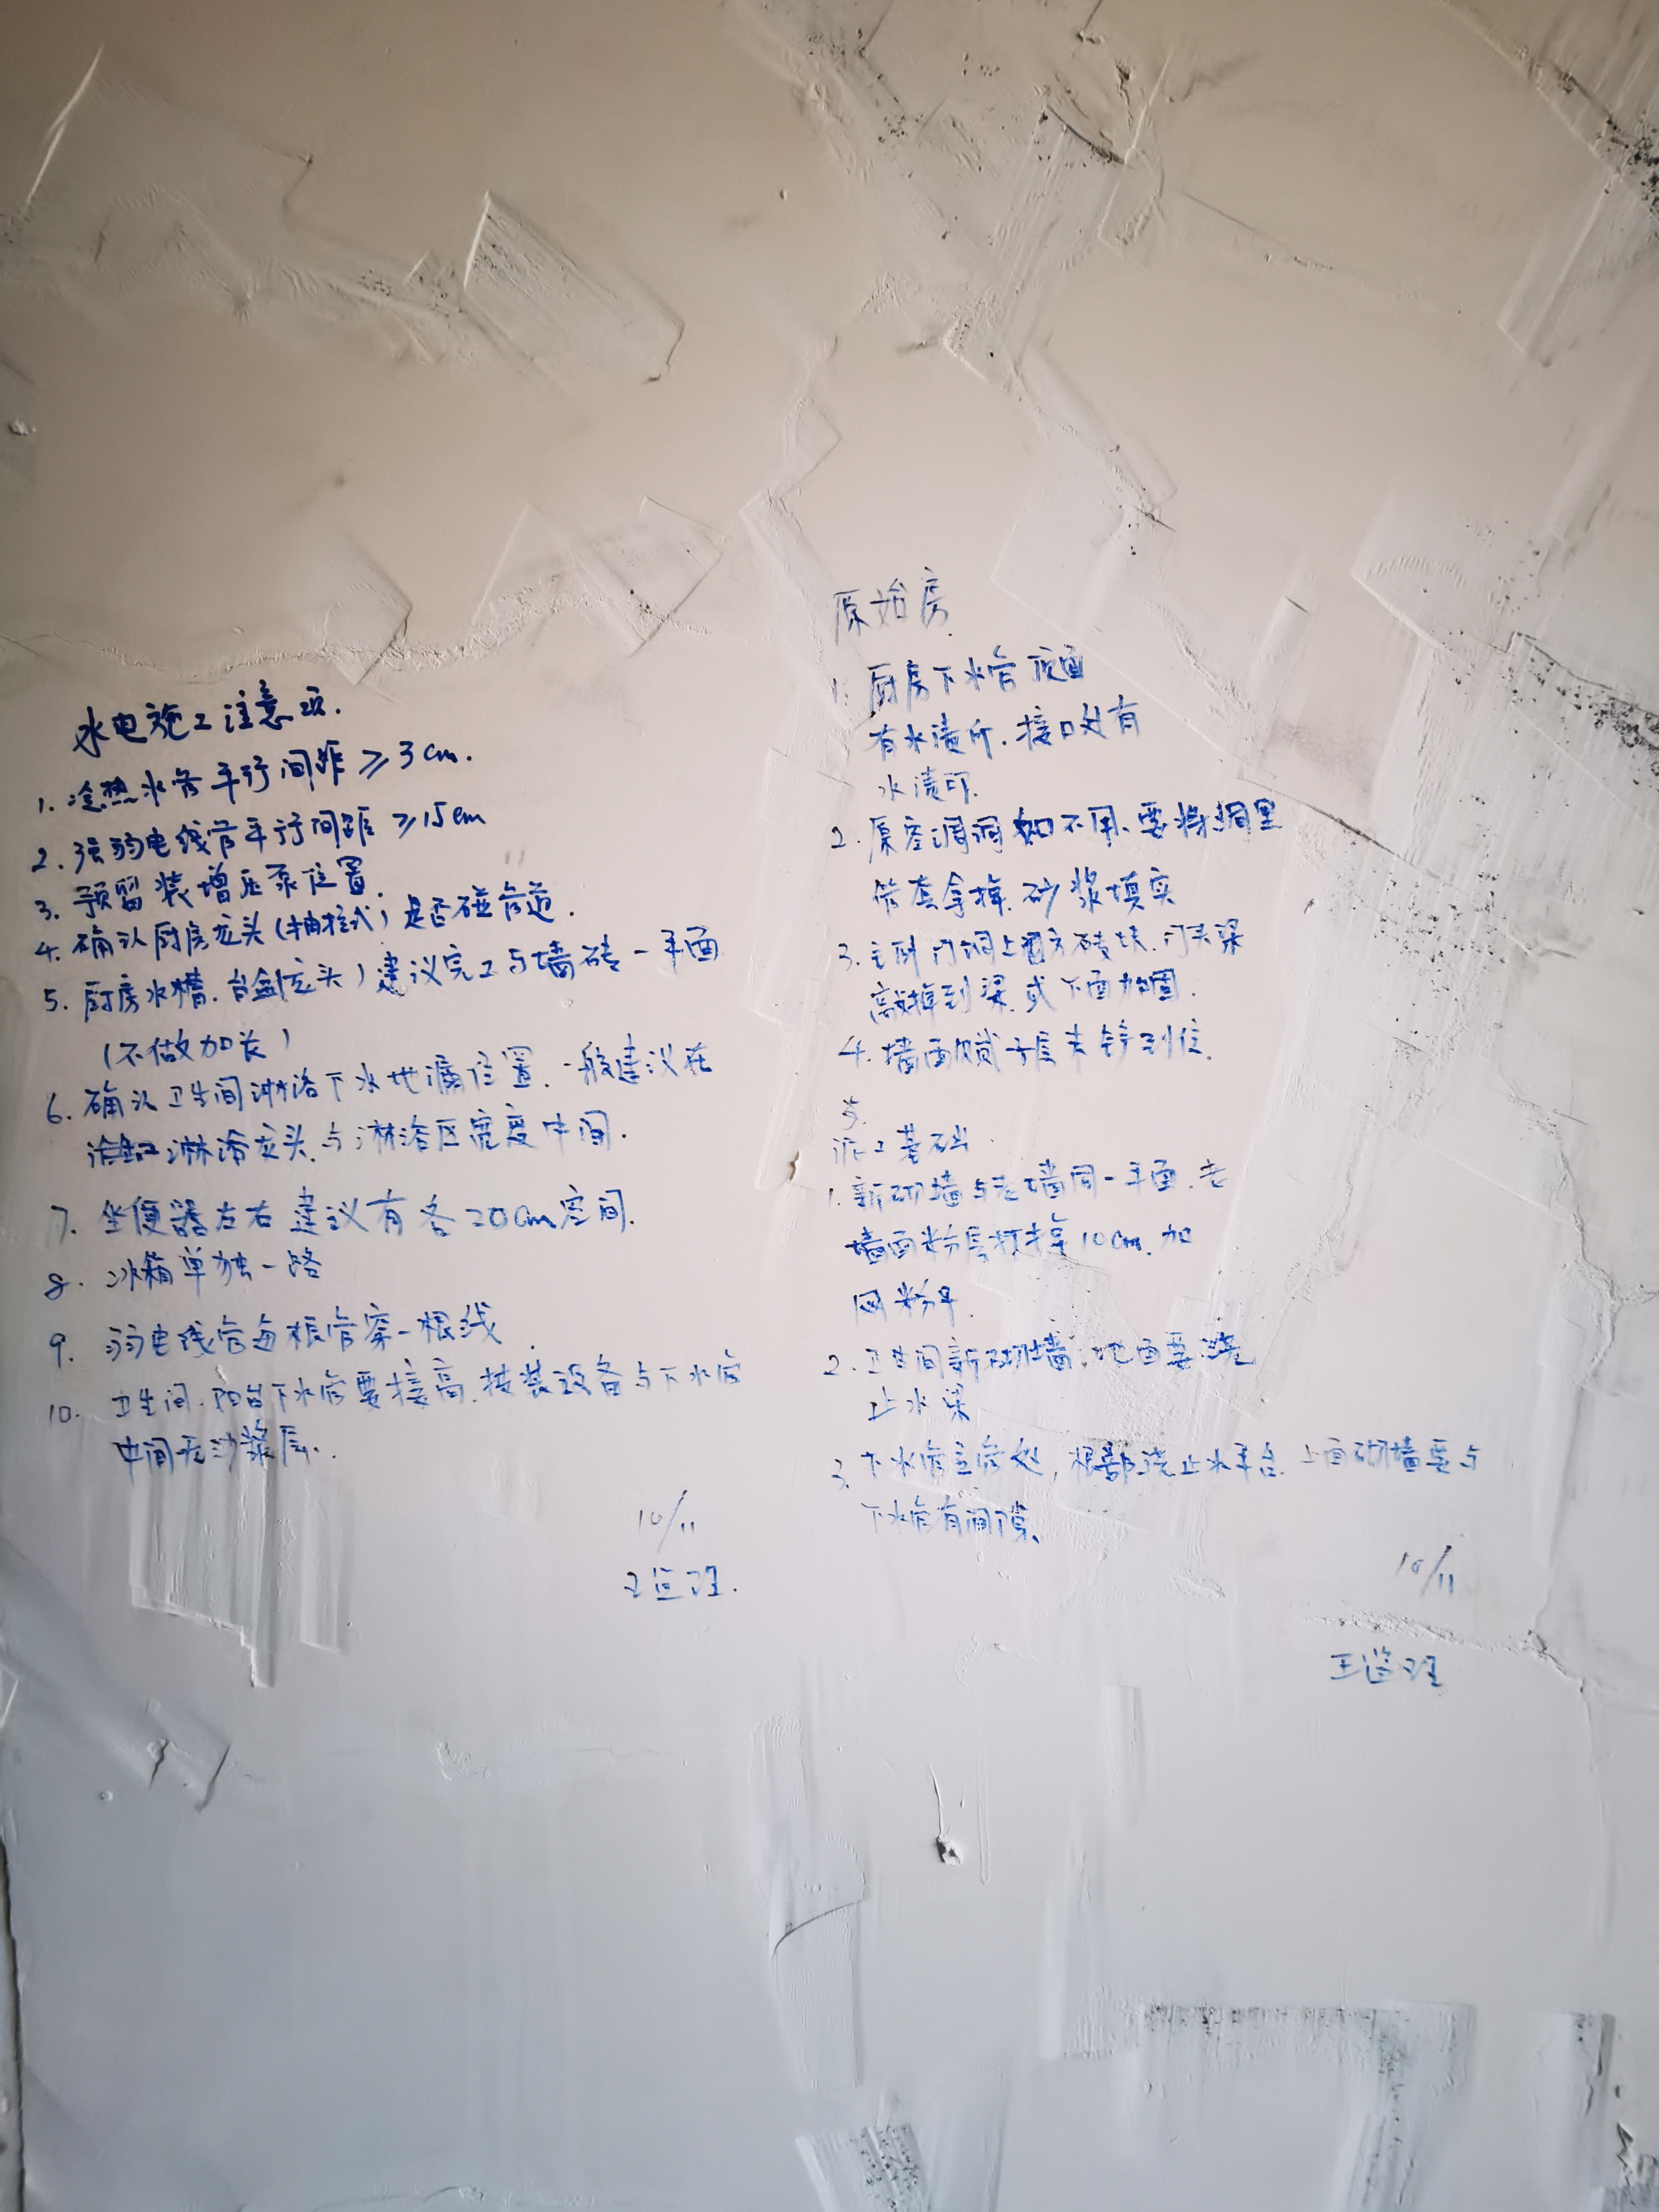 水电施工注意项.
1. 冷热水管平行间距 ≥3cm.
2. 强弱电线管平行间距 ≥15cm
3. 预留装增压泵位置.
4. 确认厨房龙头(抽拉式)是否碰管道.
5. 厨房水槽.台盆(龙头)建议完工与墙砖一平面
(不做加长)
6. 确认卫生间淋浴下水地漏位置.一般建议在
淋浴龙头.与淋浴区宽度中间.
7. 坐便器左右建议有各20cm空间.
8. 冰箱单独一路
9. 弱电线管每根管穿一根线.
10. 卫生间.阳台下水管要接高.接装设备与下水管
中间无沙浆层.
10/11
王监理.
原始房.
1. 厨房下水管顶面
有水渍印.接口处有
水渍印.
2. 原空调洞如不用.要将洞里
管套拿掉.砂浆填实
3. 主卧门洞上方砖块.门头梁
敲掉到梁.或下面加固.
4. 墙面腻子层未铲到位.
5.
施工基础.
1. 新砌墙与老墙同一平面.老
墙面粉层打掉10cm.加
网粉平.
2. 卫生间新砌墙.地面要浇
止水梁
3. 下水管主管处,根部浇止水平台.上面砌墙要与
下水管有间隙.
10/11
王监理